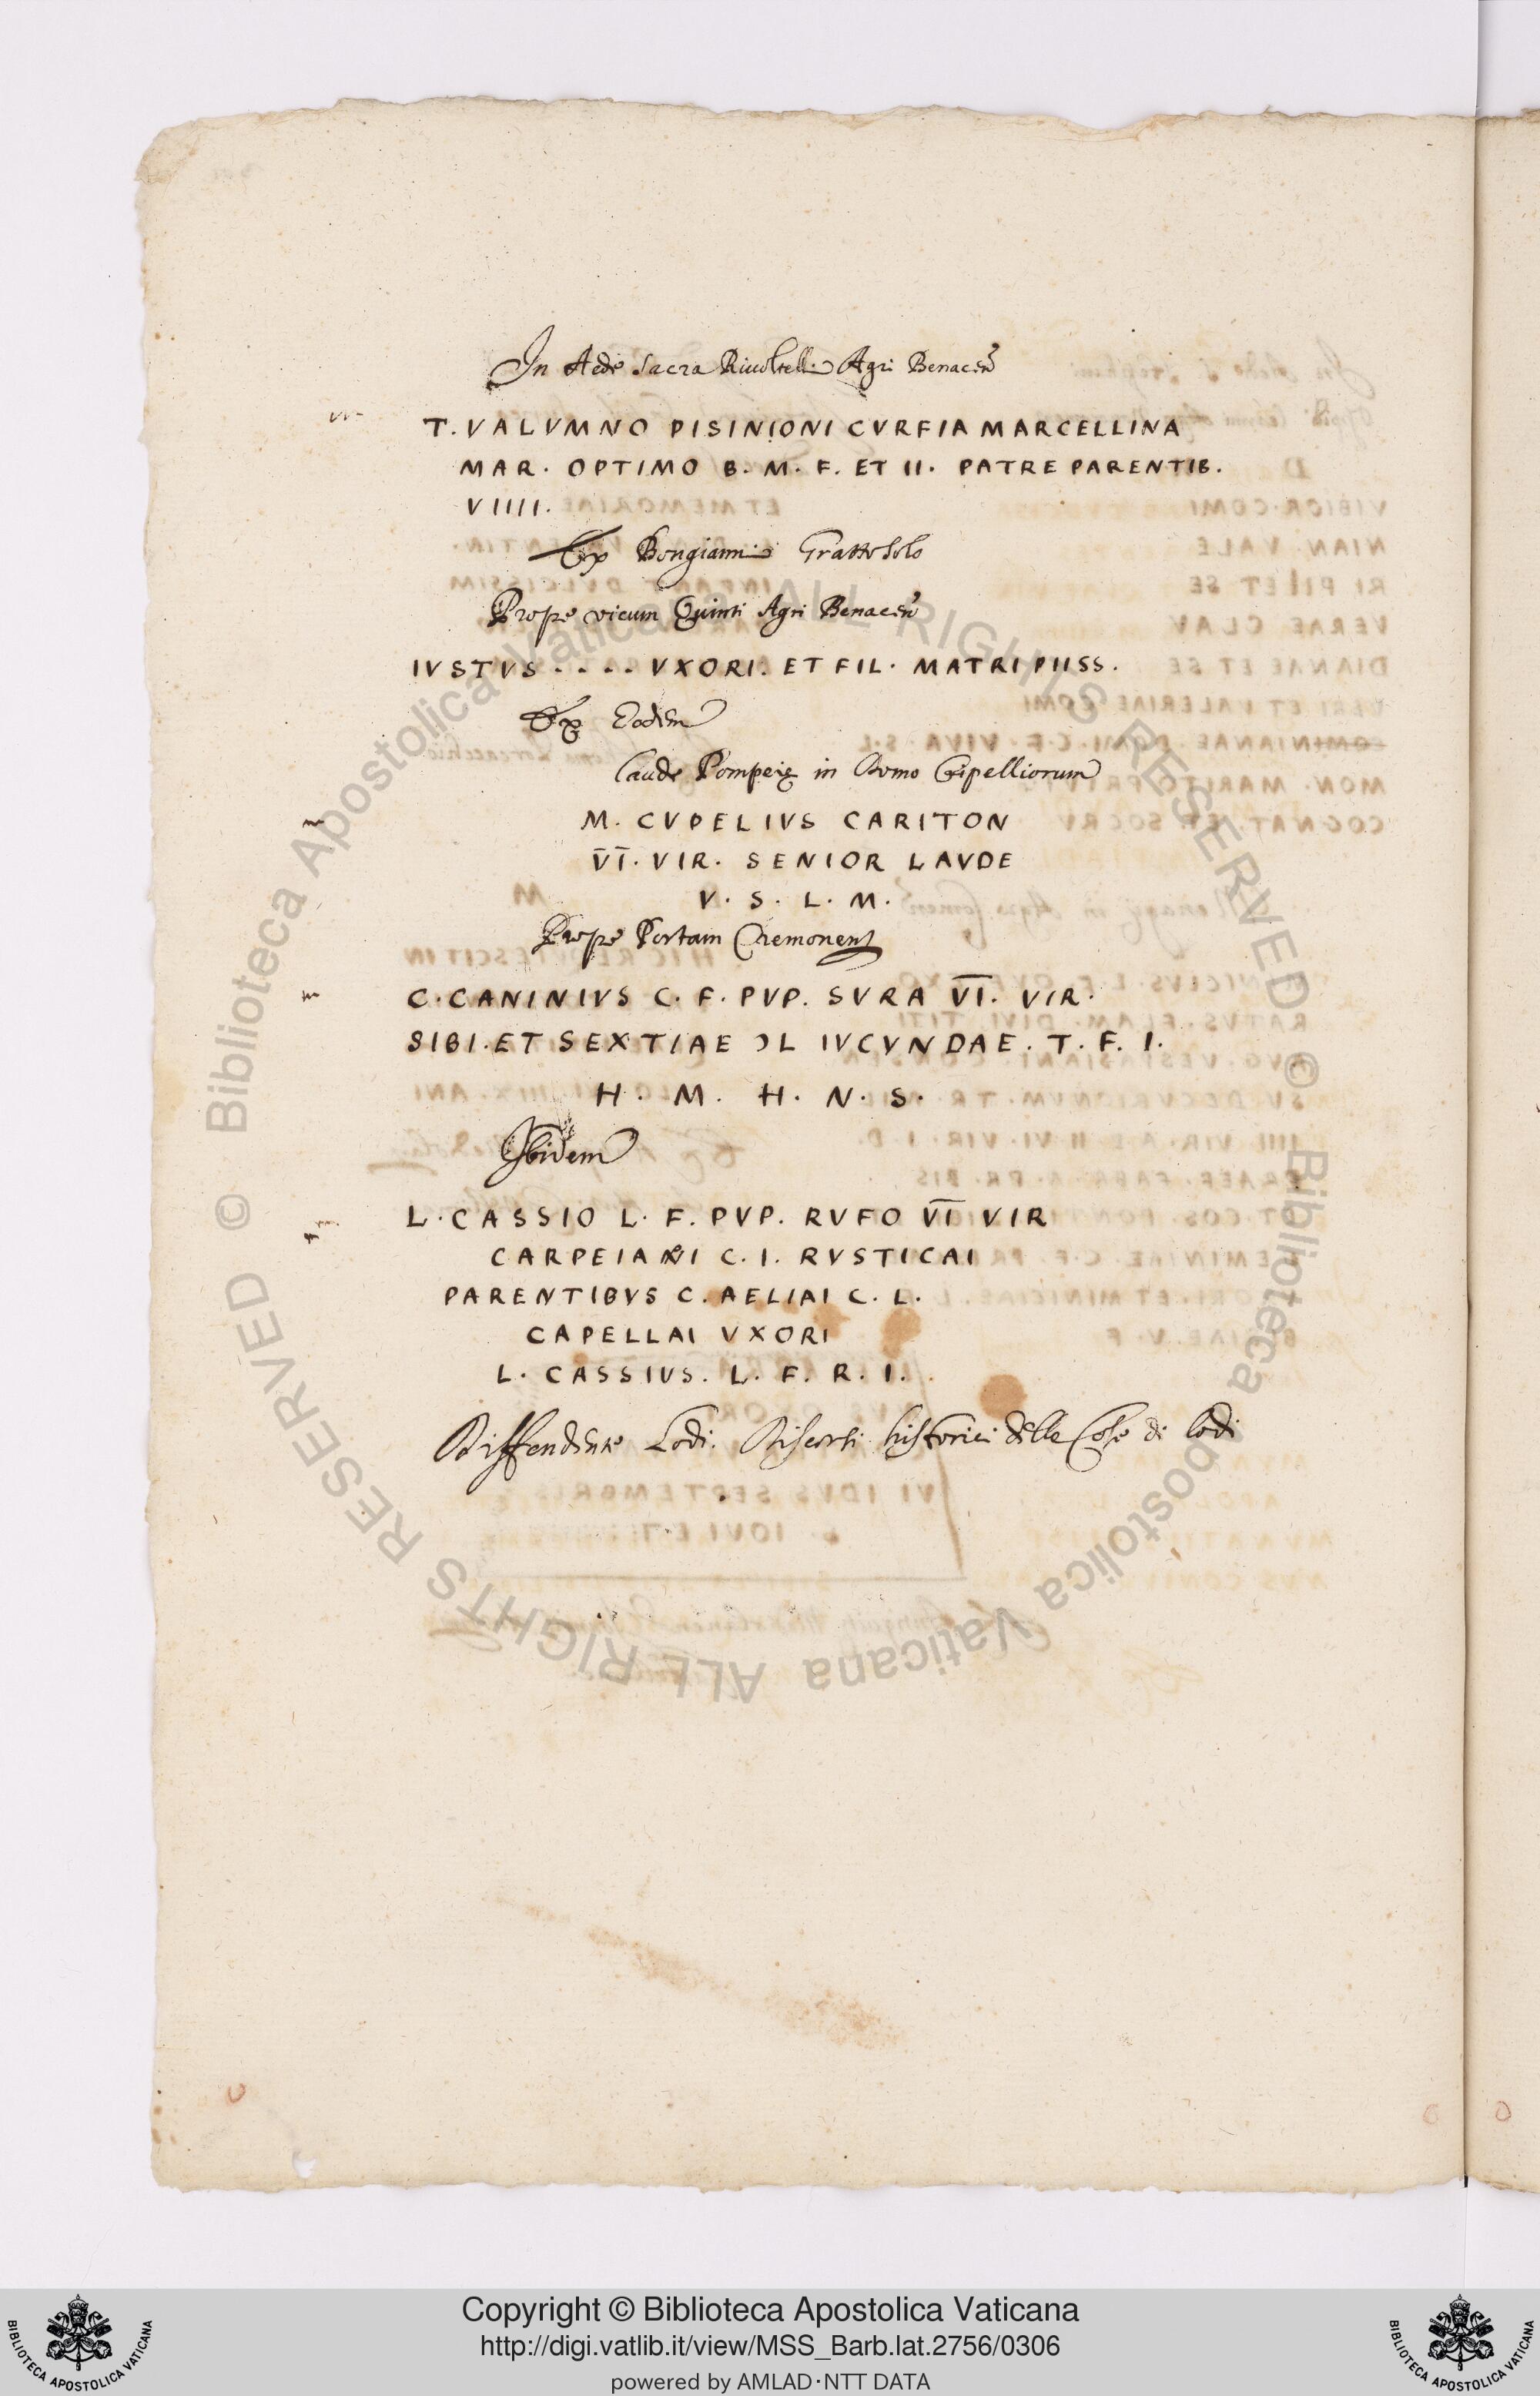 In Aede Sacra Rivoltell. Agri Benacen
T. VALVMNO PISINIONI CVRFIA MARCELLINA
MAR. OPTIMO B. M. F. ET II. PATRE PARENTIB.
VIIII.
Ex Bongianni Grattosolo
Prope vicum Quinti Agri Benacen
IVSTVS . . . . VXORI. ET FIL. MATRI PIISS.
Ex Eodem
Laude Pompeię in Domo Cipelliorum
M. CVPELIVS CARITON
VI. VIR. SENIOR LAVDE
V. S. L. M.
Prope Portam Cremonens
C. CANINIVS C. F. PVP. SVRA VI. VIR.
SIBI. ET SEXTIAE ƆL IVCVNDAE. T. F. I.
H. M. H. N. S.
Ibidem
L. CASSIO L. F. PVP. RVFO VI VIR
CARPEIANI C. I. RVSTICAI
PARENTIBVS C. AELIAI C. L.
CAPELLAI VXORI
L. CASSIUS. L. F. R. I.
Diffendente Lodi. Discorsi historici delle Cose di Lodi
Copyright © Biblioteca Apostolica Vaticana
http://digi.vatlib.it/view/MSS_Barb.lat.2756/0306
powered by AMLAD·NTT DATA
Biblioteca Apostolica Vaticana ALL RIGHTS RESERVED ©
Biblioteca Apostolica Vaticana ALL RIGHTS RESERVED ©
BIBLIOTECA APOSTOLICA VATICANA
BIBLIOTECA APOSTOLICA VATICANA